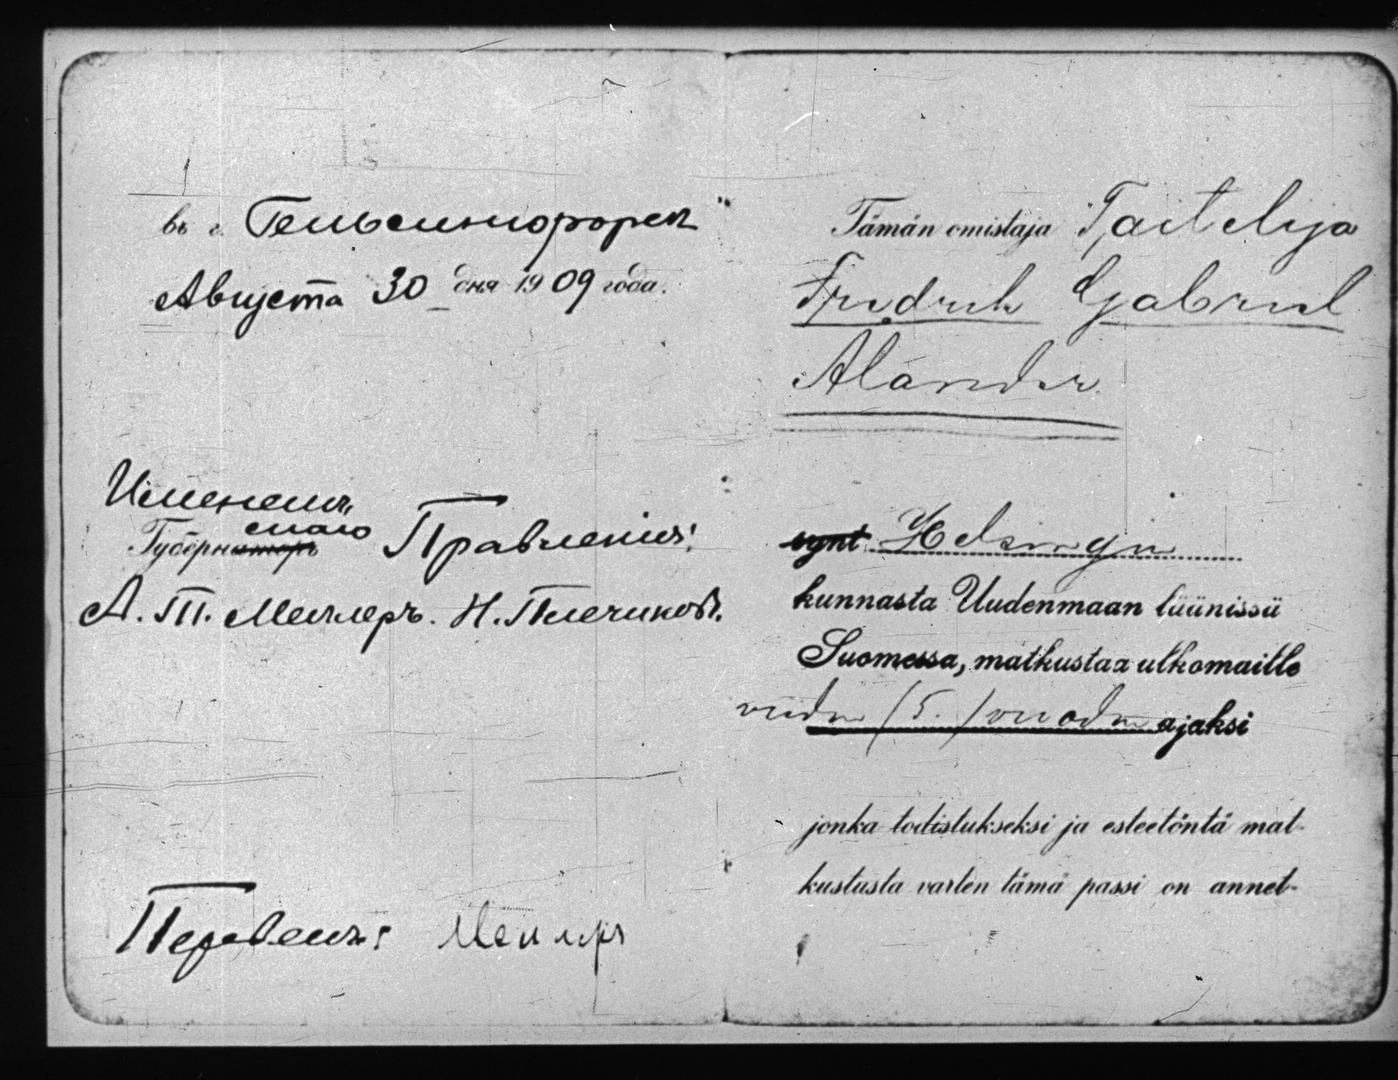 въ г. Гельсингфорсѣ
Августа 30 дня 1909 года.
Именемъ
скаго
Губернаторъ Правленія:
А. Т. Меллеръ. Н. Плечиковъ.
Перевелъ: Меллеръ
Tämän omistaja Taiteilija
Fredrik Gabriel
Ålander
synt Helsingin
kunnasta Uudenmaan läänissä
Suomessa, matkustaa ulkomaille
viiden (5.) vuoden ajaksi
jonka todistukseksi ja esteetöntä mat-
kustusta varten tämä passi on annet-